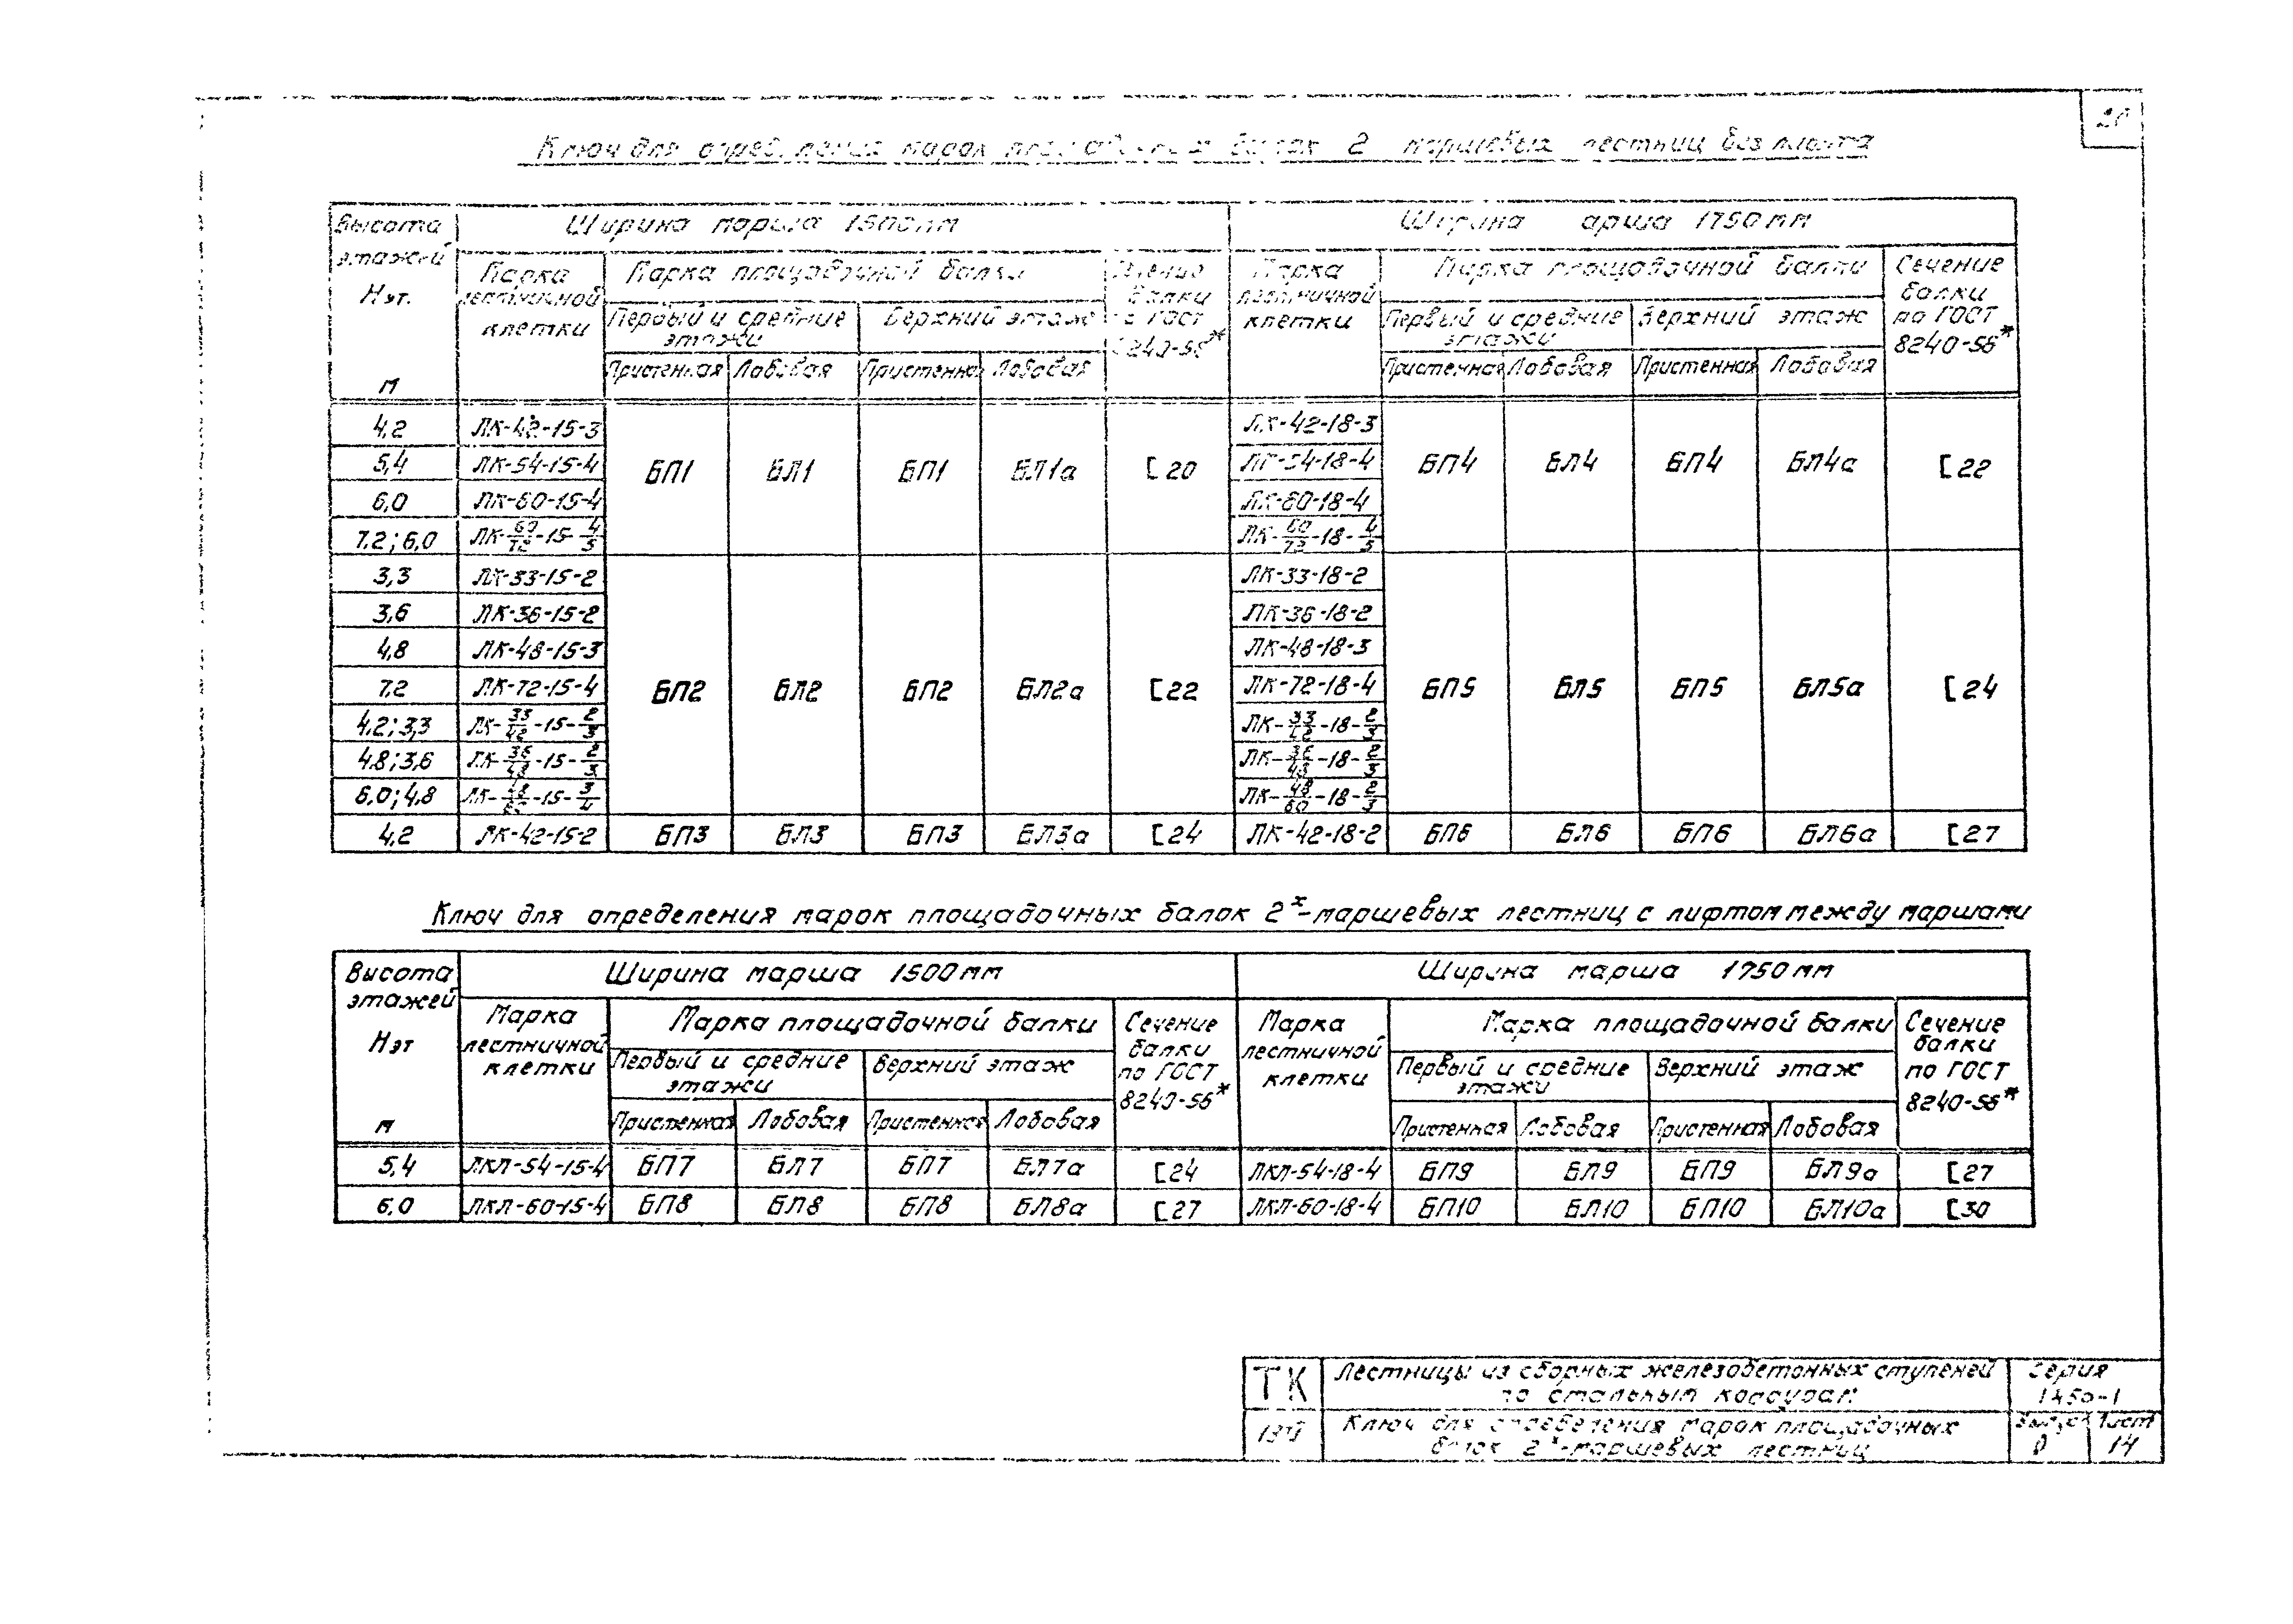 20
Ключ для определения марок площадочных балок 2 маршевых лестниц без лифта
Высота этажей Нэт. м
Ширина марша 1500мм
Ширина арша 1750мм
Марка лестничной клетки
Марка площадочной балки
Сечение балки по ГОСТ 8240-56*
Марка лестничной клетки
Марка площадочной балки
Сечение балки по ГОСТ 8240-56*
Первый и средние этажи
Верхний этаж
Первый и средние этажи
Верхний этаж
Пристенная Лобовая Пристенная Лобовая Пристенная Лобовая Пристенная Лобовая
4,2 ЛК-42-15-3 ЛК-42-18-3
5,4 ЛК-54-15-4 БП1 БЛ1 БП1 БЛ1а [20 ЛК-54-18-4 БП4 БЛ4 БП4 БЛ4а [22
6,0 ЛК-60-15-4 ЛК-60-18-4
7,2; 6,0 ЛК-60/72-15-4/5 ЛК-60/72-18-4/5
3,3 ЛК-33-15-2 ЛК-33-18-2
3,6 ЛК-36-15-2 ЛК-36-18-2
4,8 ЛК-48-15-3 ЛК-48-18-3
7,2 ЛК-72-15-4 БП2 БЛ2 БП2 БЛ2а [22 ЛК-72-18-4 БП5 БЛ5 БП5 БЛ5а [24
4,2; 3,3 ЛК-33/42-15-2/3 ЛК-33/42-18-2/3
4,8; 3,6 ЛК-36/48-15-2/3 ЛК-36/48-18-2/3
6,0; 4,8 ЛК-48/60-15-3/4 ЛК-48/60-18-2/3
4,2 ЛК-42-15-2 БП3 БЛ3 БП3 БЛ3а [24 ЛК-42-18-2 БП6 БЛ6 БП6 БЛ6а [27
Ключ для определения марок площадочных балок 2х-маршевых лестниц с лифтом между маршами
Высота этажей Нэт м
Ширина марша 1500мм
Ширина марша 1750мм
Марка лестничной клетки
Марка площадочной балки
Сечение балки по ГОСТ 8240-56*
Марка лестничной клетки
Марка площадочной балки
Сечение балки по ГОСТ 8240-56*
Первый и средние этажи
Верхний этаж
Первый и средние этажи
Верхний этаж
Пристенная Лобовая Пристенная Лобовая Пристенная Лобовая Пристенная Лобовая
5,4 ЛКЛ-54-15-4 БП7 БЛ7 БП7 БЛ7а [24 ЛКЛ-54-18-4 БП9 БЛ9 БП9 БЛ9а [27
6,0 ЛКЛ-60-15-4 БП8 БЛ8 БП8 БЛ8а [27 ЛКЛ-60-18-4 БП10 БЛ10 БП10 БЛ10а [30
ТК
Лестницы из сборных железобетонных ступеней
по стальным косоурам
Серия
1.450-1
Ключ для определения марок площадочных
балок 2х-маршевых лестниц
Выпуск Лист
0 14